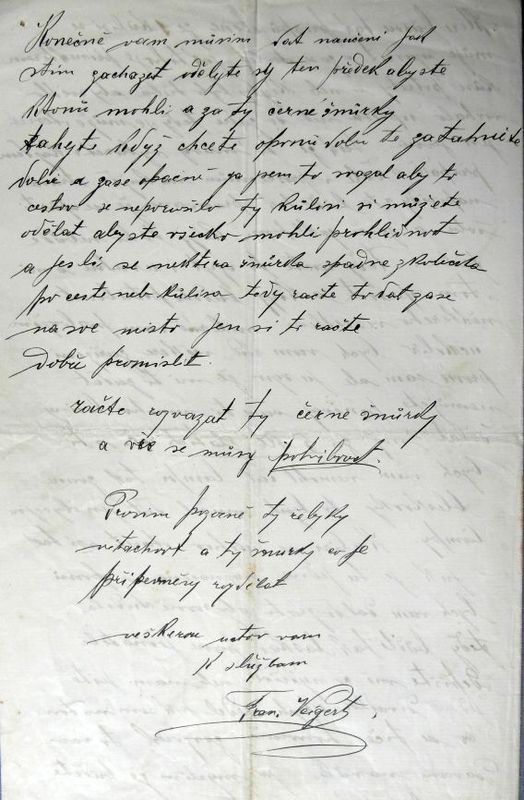 Konečně vám műsim dat naučeni jak
stim zachazet odělyte sy ten předek abyste
ktomu mohli a za ty černé šnůrky
tahejte když chcete oponu dolu te zatahnite
dolu a zase opačně ja jsem to svazal aby to
cestov se neporušilo ty kűlisi si můžete
odělat abyste všecko mohli prohlidnout
a jesli se nektera šnůrka spadne skolečka
po cestě neb kűlisa tedy račte to dat zase
na své misto jen si to račte
dobře promislit.
račte rozvazat ty černé šnůrky
a vše se műsy pohibovat.
Prosim pozorně ty řebyky
vitachnout a ty šnůrky co je
připevněny rozdělat
veškerou uctov vam
k službam
Fran. Veigert.